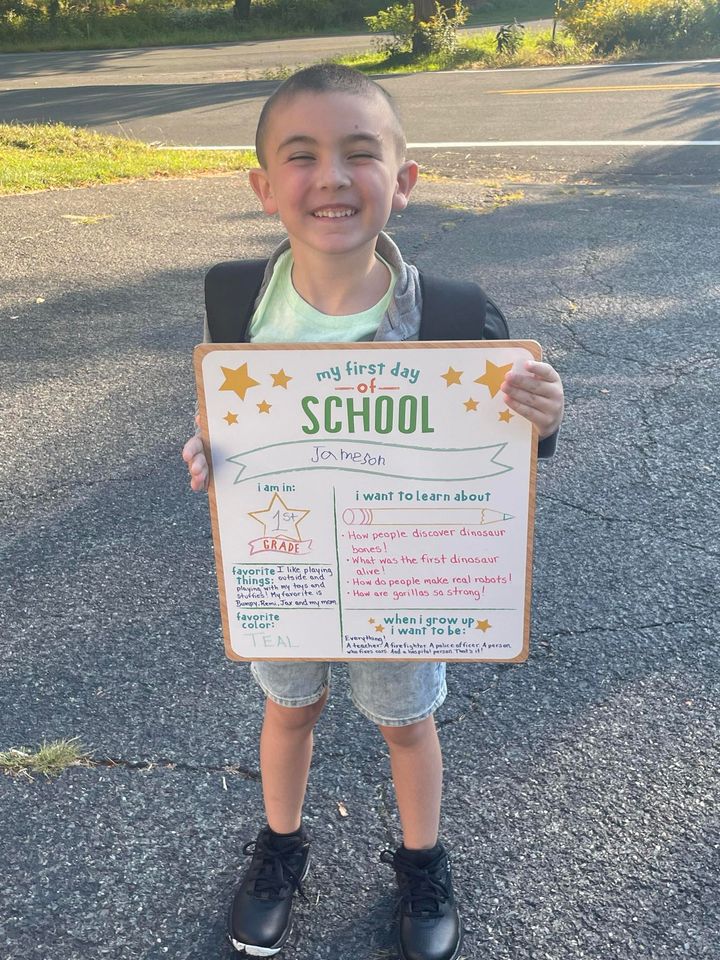 my first day
of
SCHOOL
Jameson
i am in:
1st
GRADE
i want to learn about
· How people discover dinosaur
bones!
· What was the first dinosaur
alive!
· How do people make real robots!
· How are gorillas so strong!
favorite I like playing
things: outside and
playing with my toys and
stuffies! My favorite is
Bumpy, Remi, Jax and my mom
favorite
color:
TEAL
when i grow up
i want to be:
Everything!
A teacher! A firefighter. A police officer. A person
who fixes cars. And a hospital person. That's it!